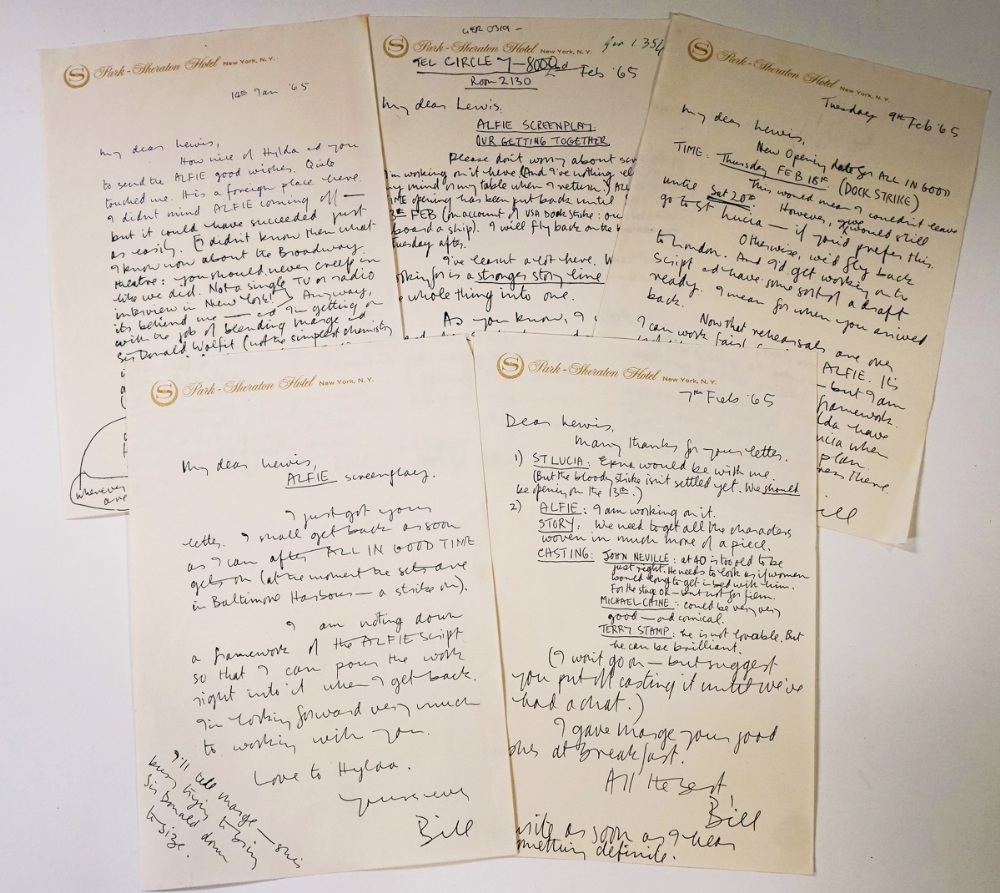 S Park-Sheraton Hotel New York, N.Y.
14th Jan '65
My dear Lewis,
How nice of Hylda ad you
to send the ALFIE good wishes. Quite
touched me. It is a foreign place here.
I didn't mind ALFIE coming off —
but it could have succeeded just
as easily. (I didn't know then what
I know now about the Broadway
theatre: you should never creep in
like we did. Not a single TV or radio
interview in New York!) Anyway,
its behind me — ad I'm getting on
with the job of blending Marge ad
Sir Donald Wolfit (not the simplest chemistry
wherever
are
S Park-Sheraton Hotel New York, N.Y.
TEL CIRCLE 7-8000
2nd Feb '65
Room 2130
My dear Lewis.
ALFIE SCREENPLAY
OUR GETTING TOGETHER
Please don't worry about scr
I'm working on it here (And I've nothing el
my mind or my table when I return). ALL
IME opening has been put back until
FEB (on account of USA Dock strike: our
board a ship). I will fly back on the
Tuesday after.
I've learnt a lot here. W
oking for is a stronger story line
whole thing into one.
As you know, I
S Park-Sheraton Hotel New York, N.Y.
Tuesday 9th Feb '65
My dear Lewis,
New Opening dates for ALL IN GOOD
TIME. Thursday FEB 18th (DOCK STRIKE)
This would mean I couldn't leave
until Sat 20th. However, I would still
go to St Lucia — if you'd prefer this.
Otherwise, we'd fly back
to London. And I'd get working on to
script ad have some sort of a draft
ready. I mean for when you arrived
back.
Now that rehearsals are over
I can work fairl
ALFIE. Its
— but I am
framework.
lda have
ucia when
plan
ness there.
ill
S Park-Sheraton Hotel New York, N.Y.
My dear Lewis,
ALFIE screenplay.
I just got your
letter. I shall get back as soon
as I can after ALL IN GOOD TIME
gets on (at the moment the sets are
in Baltimore Harbour — a strike on).
I am noting down
a framework of the ALFIE script
so that I can pour the work
right into it when I get back.
I'm looking forward very much
to working with you.
Love to Hylda.
Yours ever
Bill
I'll tell Marge — she's
busy trying to bring
Sir Donald down
to size.
S Park-Sheraton Hotel New York, N.Y.
7th Feb '65
Dear Lewis,
Many thanks for your letter.
1) ST LUCIA: Erna would be with me.
(But the bloody strike isn't settled yet. We should
be opening on the 13th.)
2) ALFIE: I am working on it.
STORY: We need to get all the characters
woven in much more of a piece.
CASTING: JOHN NEVILLE: at 40 is too old to be
just right. He needs to look as if women
would long to get in bed with him.
For the stage OK — but not for film.
MICHAEL CAINE: could be very very
good — ad comical.
TERRY STAMP: he is not loveable. But
he can be brilliant.
(I won't go on — but suggest
you put off casting it until we've
had a chat.)
I gave Marge your good
shes at breakfast.
All the best
Bill
write as soon as I hear
omething definite.